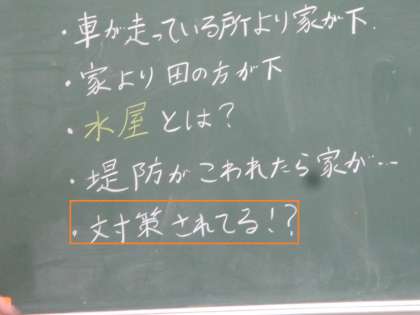 ・車が走っている所より家が下.
・家より田の方が下
・水屋とは？
・堤防がこわれたら家が…
・対策されてる!?